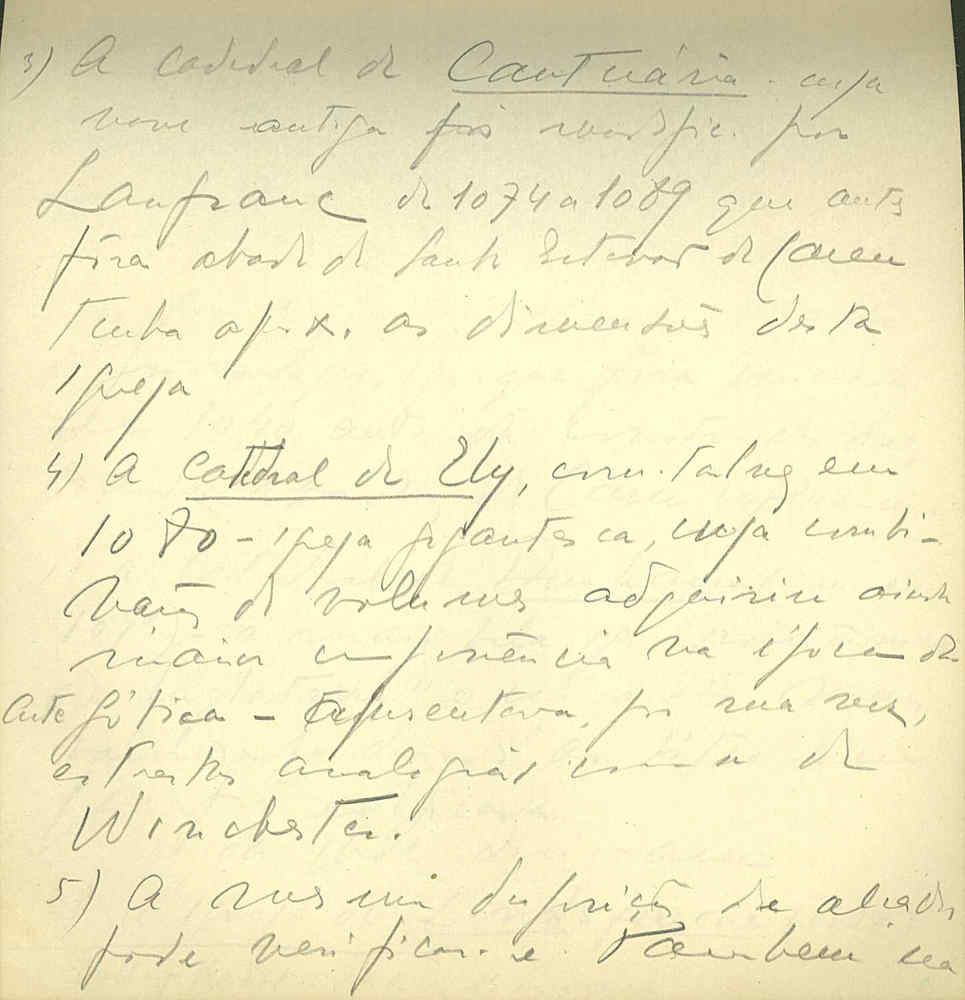 3) A catedral de Cantuária cuja
nave antiga foi modific. por
Lanfranc de 1074 a 1089 que antes
fôra abade de Santo Estevão de Caen
tinha apox. as dimensões desta
igreja
4) A catedral de Ely, com. talvez em
1080 - igreja gigantesca, cuja combi-
nação de volumes adquiriu ainda
maior imponência na época da
arte gótica - Apresentava, por sua vez,
estreitas analogias com a de
Winchester.
5) A mesma disposição de abades
pode verificar-se também na